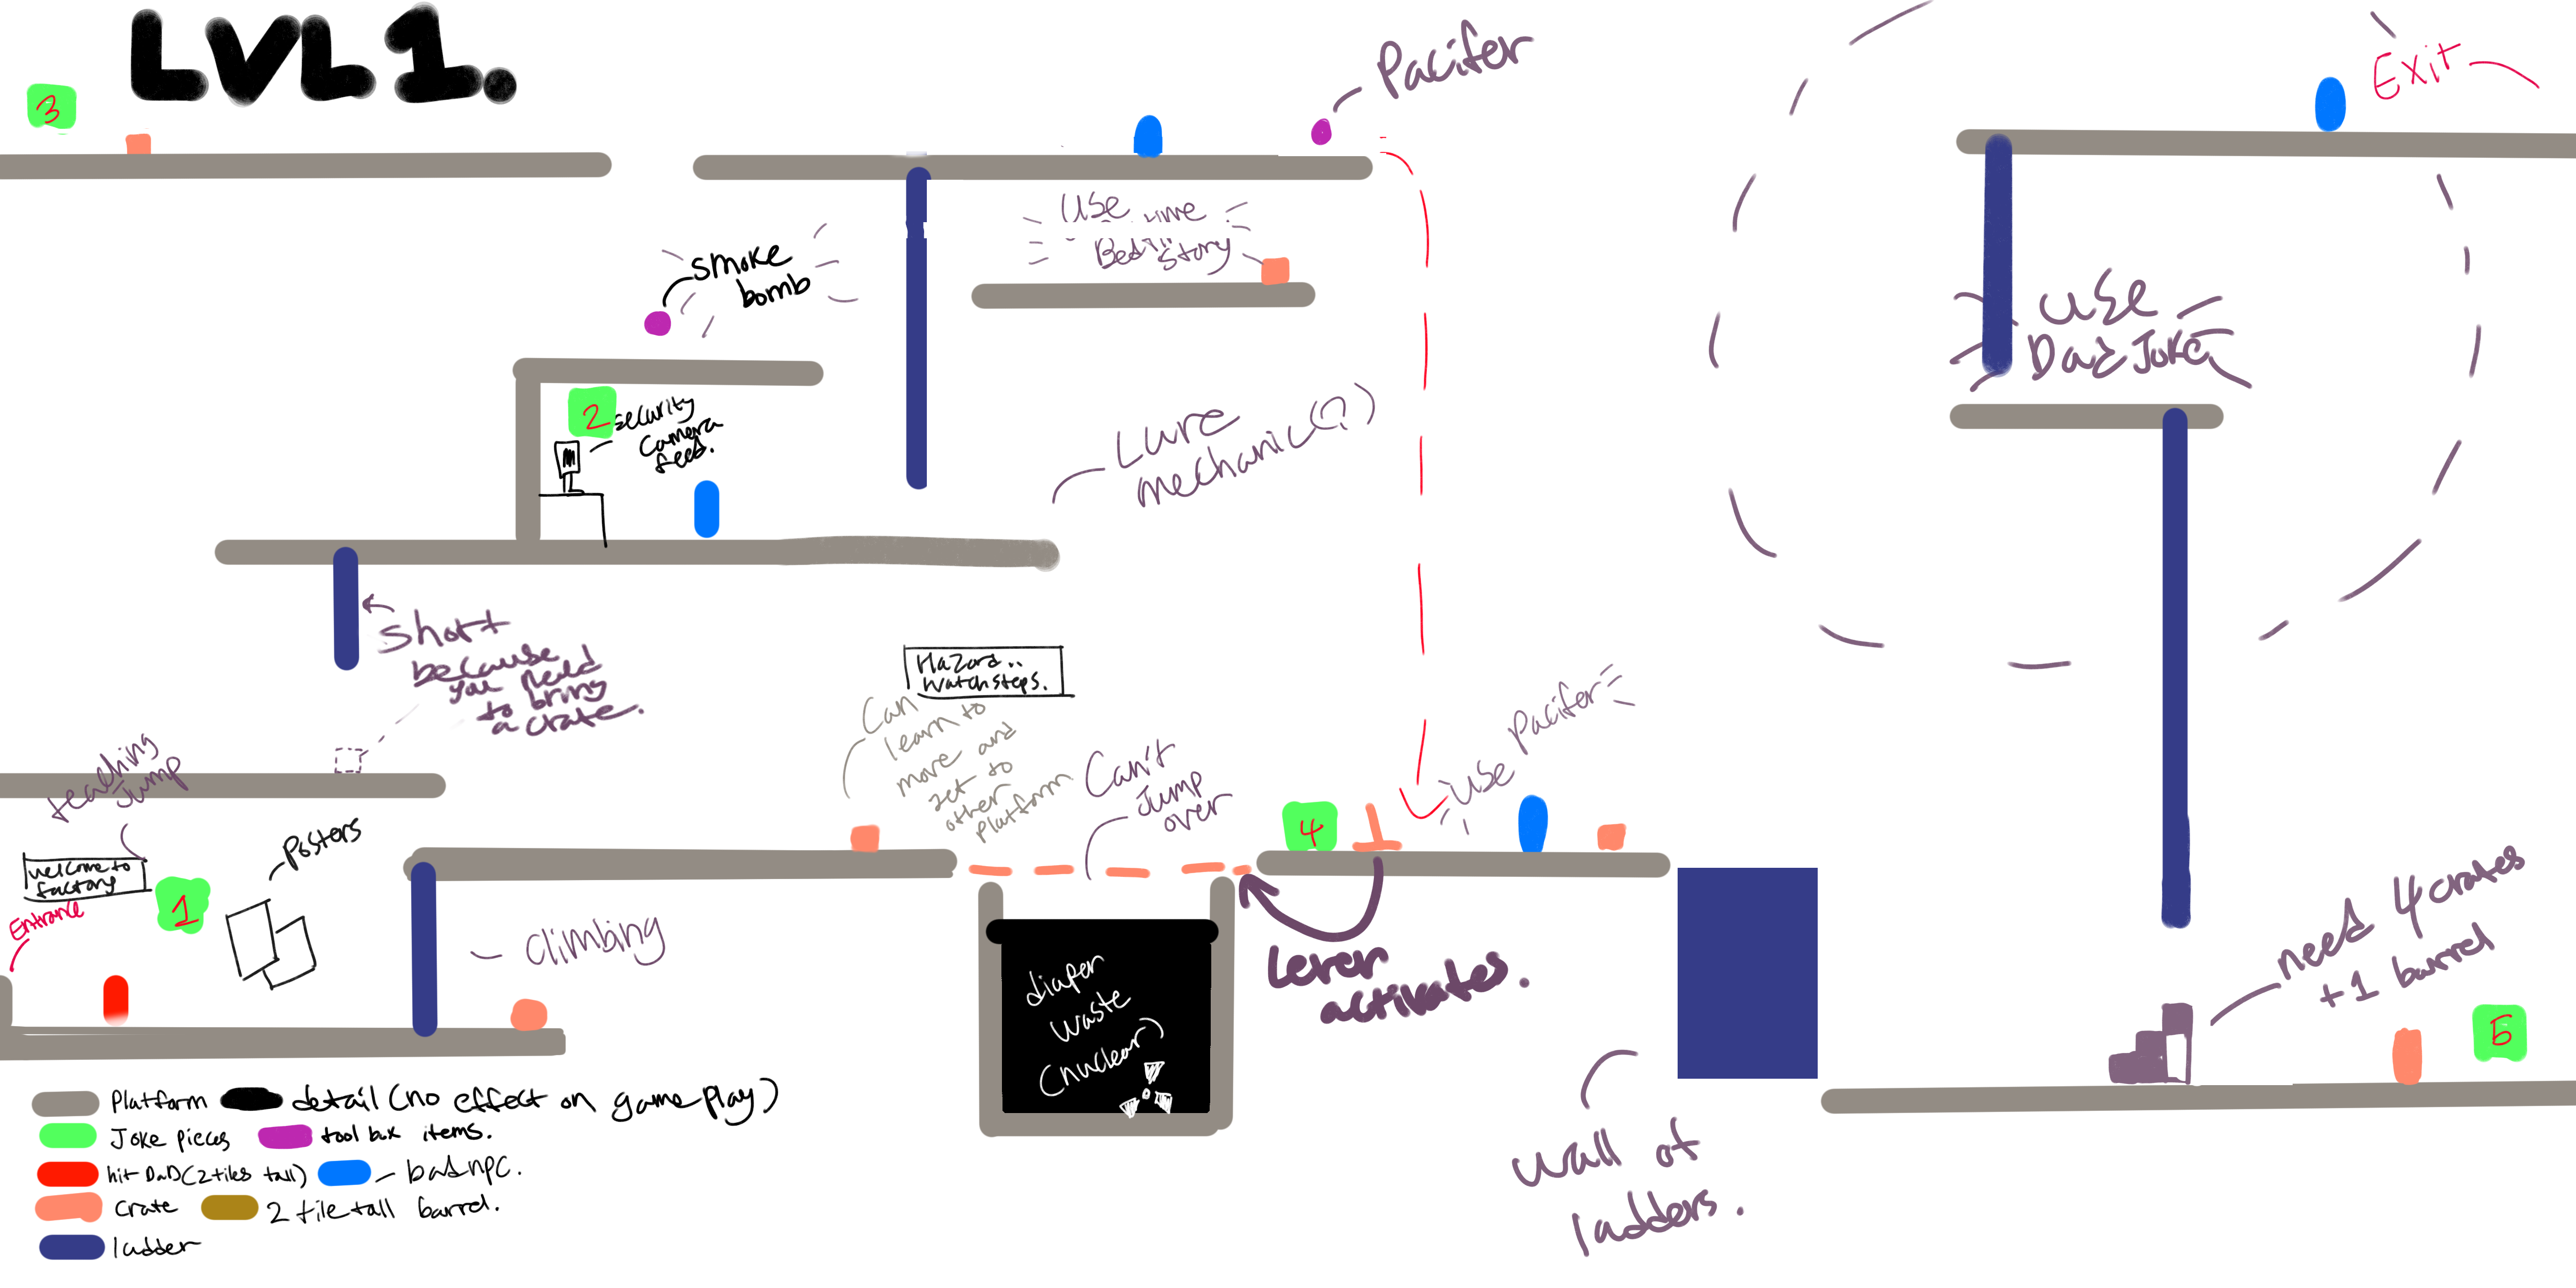 LVL1.
3
Pacifer
Exit
smoke
bomb
use
Bed
Story
2
security
camera
feed.
Lure
mechanic(?)
use
Dad Joke
short
because
you need
to bring
a crate.
Hazard..
Watch steps.
Can
learn to
move and
get to
other
platform
Can't
Jump
over
use Pacifer
teaching
jump
welcome to
factory
Entrance
1
Posters
climbing
4
Lever
activates.
diaper
waste
(nuclear)
need 4 crates
+1 barrel
5
wall of
ladders.
Platform
detail (no effect on gameplay)
Joke pieces
tool box items.
hit DaD (2 tiles tall)
- bad npc.
Crate
2 tile tall barrel.
ladder